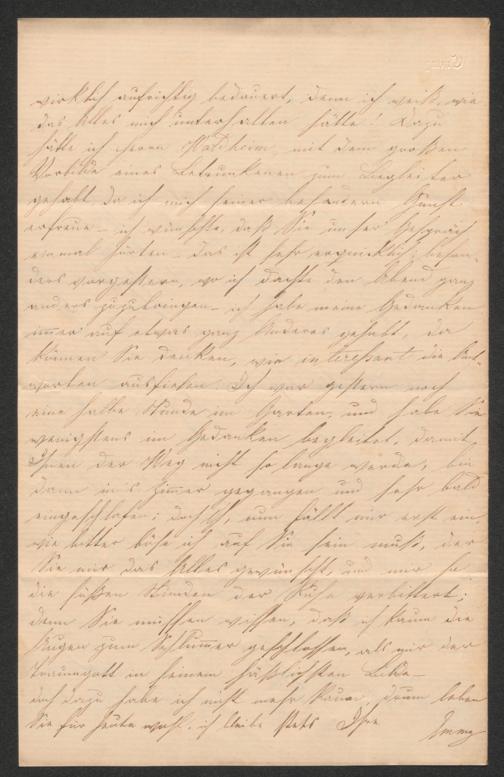 wirklich aufrichtig bedauert, denn ich weiß, wie
das Alles mich unterhalten hätte! Dazu
hätte ich Herrn mit dem großen
Vorbilde eines Betrunkenen zum Begleiter
gehabt, da ich mich seiner besondern Gunst
erfreue – ich wünschte, daß Sie unser Gespräch
einmal hörten. Das ist sehr erquicklich; beson-
ders vorgestern, wo ich dachte den Abend ganz
anders zuzubringen – ich habe meine Gedanken
immer auf etwas ganz Anderes gehabt, da
können Sie denken, wie interessant die Ant-
worten ausfielen. Ich war gestern noch
eine halbe Stunde im Garten, und habe Sie
wenigstens im Gedanken begleitet, damit
Ihnen der Weg nicht so lange werde, bin
dann in's Zimmer gegangen und sehr bald
eingeschlafen; doch, nun fällt mir erst ein,
wie bitter böse ich auf Sie sein muß, der
Sie mir das Alles gewünscht, und mir so
die süßen Stunden der Ruhe verbittert;
denn Sie müssen wissen, daß ich kaum die
Augen zum Schlummer geschlossen, als mir der
Traumgott in seinem häßlichsten Bilde –
doch dazu habe ich nicht mehr Raum, drum leben
Sie für heute wohl. ich bleibe stets Ihre
Emmy